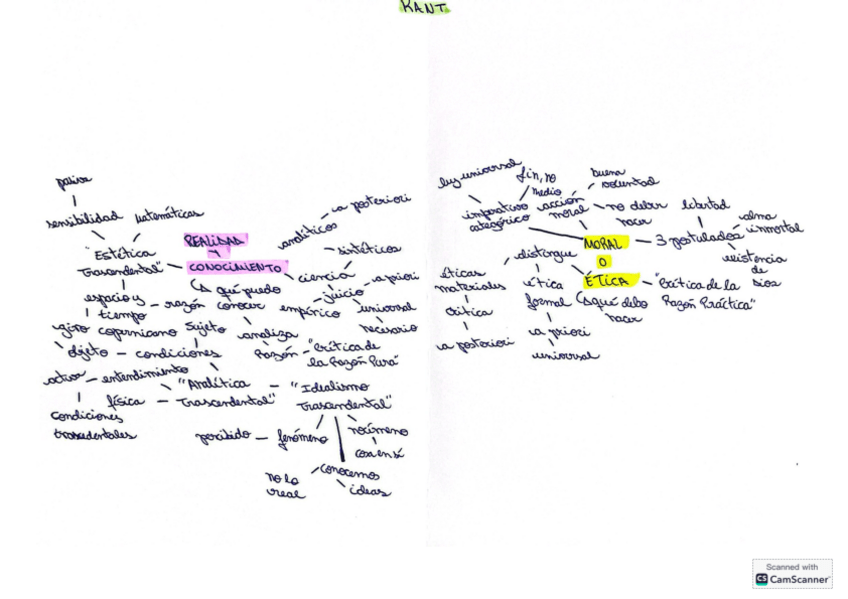 KANT
REALIDAD
Y
CONOCIMIENTO
↳ qué puedo
conocer
pasiva
sensibilidad
matemáticas
"Estética
Trascendental"
espacio y
tiempo
razón
giro copernicano
sujeto
objeto — condiciones
analiza
Razón — "Crítica de
la Razón Pura"
ciencia
juicio
analíticos
a posteriori
sintéticos
a priori
empírico
universal
necesario
activa — entendimiento
condiciones
física — "Analítica
Trascendental"
"Idealismo
Trascendental"
percibido — fenómeno
noúmeno
cosa en sí
conocemos
no lo
real
ideas
MORAL
O
ÉTICA
↳ qué debo
hacer
ley universal
fin, no
medio
imperativo
categórico
acción
moral
buena
voluntad
no debe
hacer
3 postulados
libertad
alma
inmortal
existencia
de
Dios
"Crítica de la
Razón Práctica"
distingue
éticas
materiales
crítica
a posteriori
ética
formal
a priori
universal
Scanned with
CS CamScanner